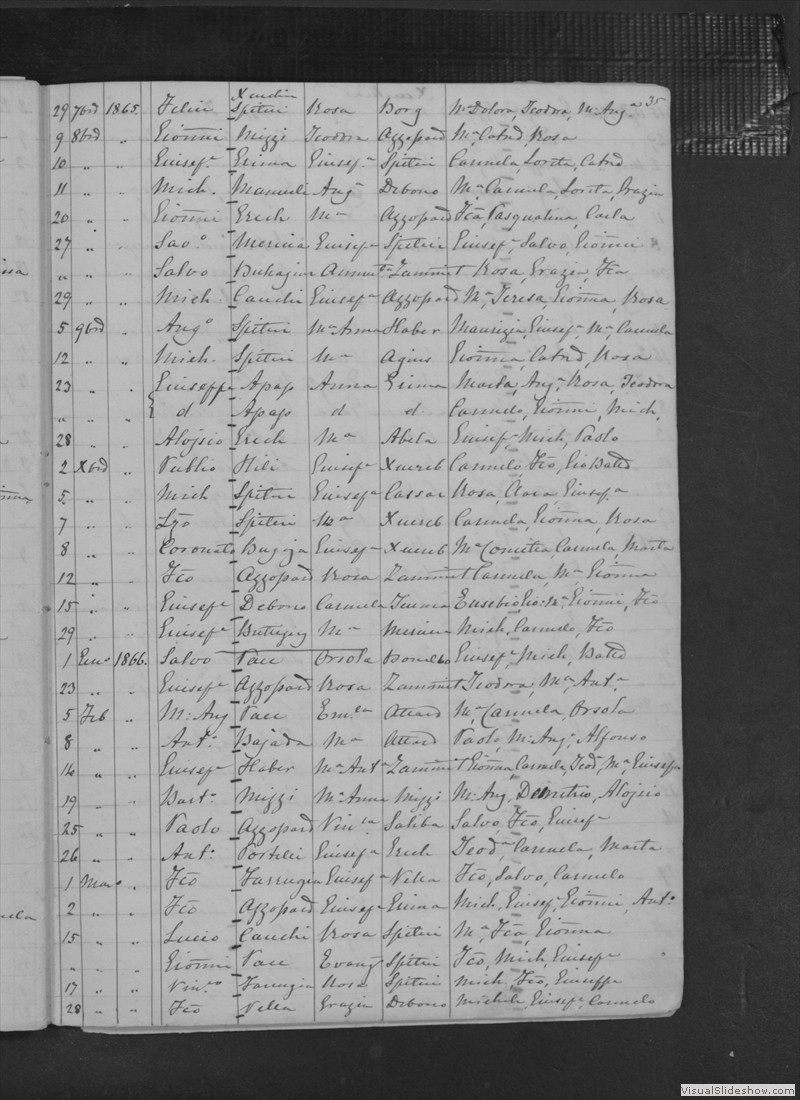 35
Xuedin
29 7brē 1865. Felice Spiteri Rosa Borg Mª Dolora, Teodora, M: Angª
9 8brē " Giōnni Mizzi Teodora Azzopard Mª Catrē, Rosa
10 " " Giusefª Grima Giusefª Spiteri Carmela, Loreta, Catrē
11 " " Mich. Mamueli Angª Debono Mª Carmela, Loreta, Grazia
20 " " Giōnni Grech Mª Azzopard Fcā, Pasqualina, Carla
27 " " Savº Mercieca Giusepª Spiteri Giusefª, Salvo, Giōnni
" " " Salvo Buhagiar Annunt.ª Zammit Rosa, Grazia, Fcā
29 " " Mich Cauchi Giusefª Azzopard Mª Teresa, Giōnna, Rosa
5 9brē " Angº Spiteri Mª Anna Haber Maurizia, Giusefª, Mª, Carmela
12 " " Mich. Spiteri Mª Agius Giōnna, Catrē, Rosa
23 " " Giuseppe Apap Anna Grima Marta, Angª, Rosa, Teodora
" " " d Apap d d Carmelo, Giōnni, Mich.
28 " " Alojsio Grech Mª Abela Giusefª, Mich, Paolo
2 Xbrē " Publio Hili Giusefª Xuereb Carmelo, Fcō, Gio Battā
5 " " Mich Spiteri Giusefª Cassar Rosa, Clara, Giusefª
7 " " Lzo Spiteri Mª Xuereb Carmela, Giōnna, Rosa
8 " " Coronato Bugeja Giusefª Xuereb Mª Concetta, Carmela, Marta
12 " " Fcō Azzopard Rosa Zammit Carmela, Mª, Giōnna
15 " " Giusefe Debono Carmela Teuma Eusebio, Gio: Mª, Giōnni, Fcō
29 " " Giusefe Buttigieg Mª Mercieca Mich, Carmelo, Fcō
1 Genº 1866. Salvo Pace Orsola Bonello Giusefe, Mich, Battā
23 " " Giusefe Azzopard Rosa Zammit Teodora, Mª, Antª
5 Feb " M: Ang Pace Em.la Attard Mª, Carmela, Orsola
8 " " Antº Bajada Mª Attard Paolo, M: Angº, Alfonso
14 " " Giusefe Haber Mª Antª Zammit Giōnna, Carmela, Teodª, Mª, Giusefa
19 " " Bartº Mizzi Mª Anna Mizzi M: Ang, Demetrio, Alojsio
25 " " Paolo Azzopard Vin.za Saliba Salvo, Fcō, Giusefe
26 " " Antº Portelli Giusefª Grech Teodª, Carmela, Marta
1 Marº " Fcō Farrugia Giusefª Vella Fcō, Salvo, Carmelo
2 " " Fcō Azzopard Giusefª Grima Mich, Giusefe, Giōnni, Antº
15 " " Lucio Cauchi Rosa Spiteri Mª, Fcā, Giōnna
" " " Giōnni Pace Evangª Spiteri Fcō, Mich, Giusefe
17 " " Vin.zo Farrugia Rosa Spiteri Mich, Fcō, Giuseppe
28 " " Fcō Vella Grazia Debono Michele, Giusefe, Carmelo
VisualSlideshow.com